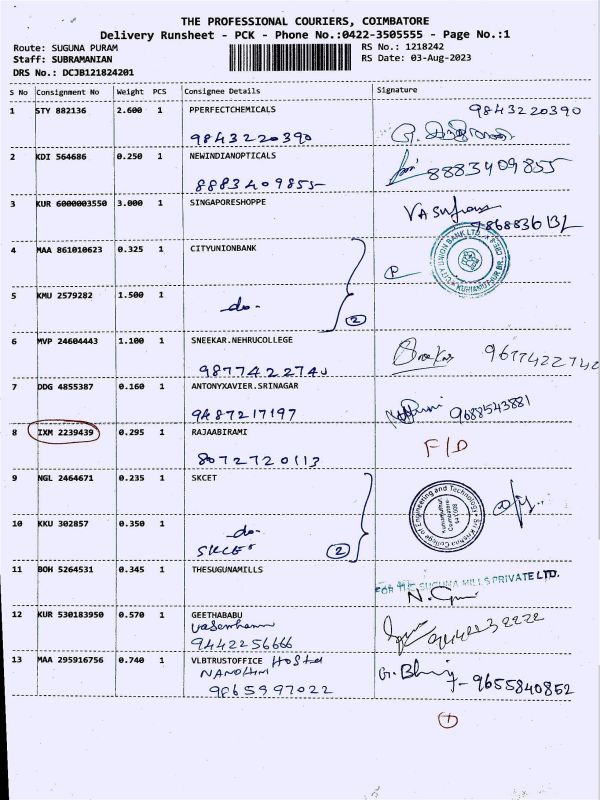 THE PROFESSIONAL COURIERS, COIMBATORE
Delivery Runsheet - PCK - Phone No.:0422-3505555 - Page No.:1
Route: SUGUNA PURAM RS No.: 1218242
Staff: SUBRAMANIAN RS Date: 03-Aug-2023
DRS No.: DCJB121824201
S No Consignment No Weight PCS Consignee Details Signature
1 STY 882136 2.600 1 PPERFECTCHEMICALS 9843220390
9843220390
2 KDI 564686 0.250 1 NEWINDIANOPTICALS 8883409855
8883409855
3 KUR 6000003550 3.000 1 SINGAPORESHOPPE
4 MAA 861010623 0.325 1 CITYUNIONBANK
CITY UNION BANK LTD.
KUNIAMUTHUR BR.
5 KMU 2579282 1.500 1
-do-
2
6 MVP 24604443 1.100 1 SNEEKAR.NEHRUCOLLEGE
9677422742
7 DDG 4855387 0.160 1 ANTONYXAVIER.SRINAGAR
9487217197 9688543881
8 IXM 2239439 0.295 1 RAJAABIRAMI F/D
8072720113
9 NGL 2464671 0.235 1 SKCET
Sri Krishna College of Engineering and Technology
Kuniamuthur
Coimbatore
641 008
10 KKU 302857 0.350 1
-do-
SKCET 2
11 BOH 5264531 0.345 1 THESUGUNAMILLS
FOR THE SUGUNA MILLS PRIVATE LTD.
12 KUR 530183950 0.570 1 GEETHABABU
9442256666
13 MAA 295916756 0.740 1 VLBTRUSTOFFICE Hostel
9865997022 9655840852